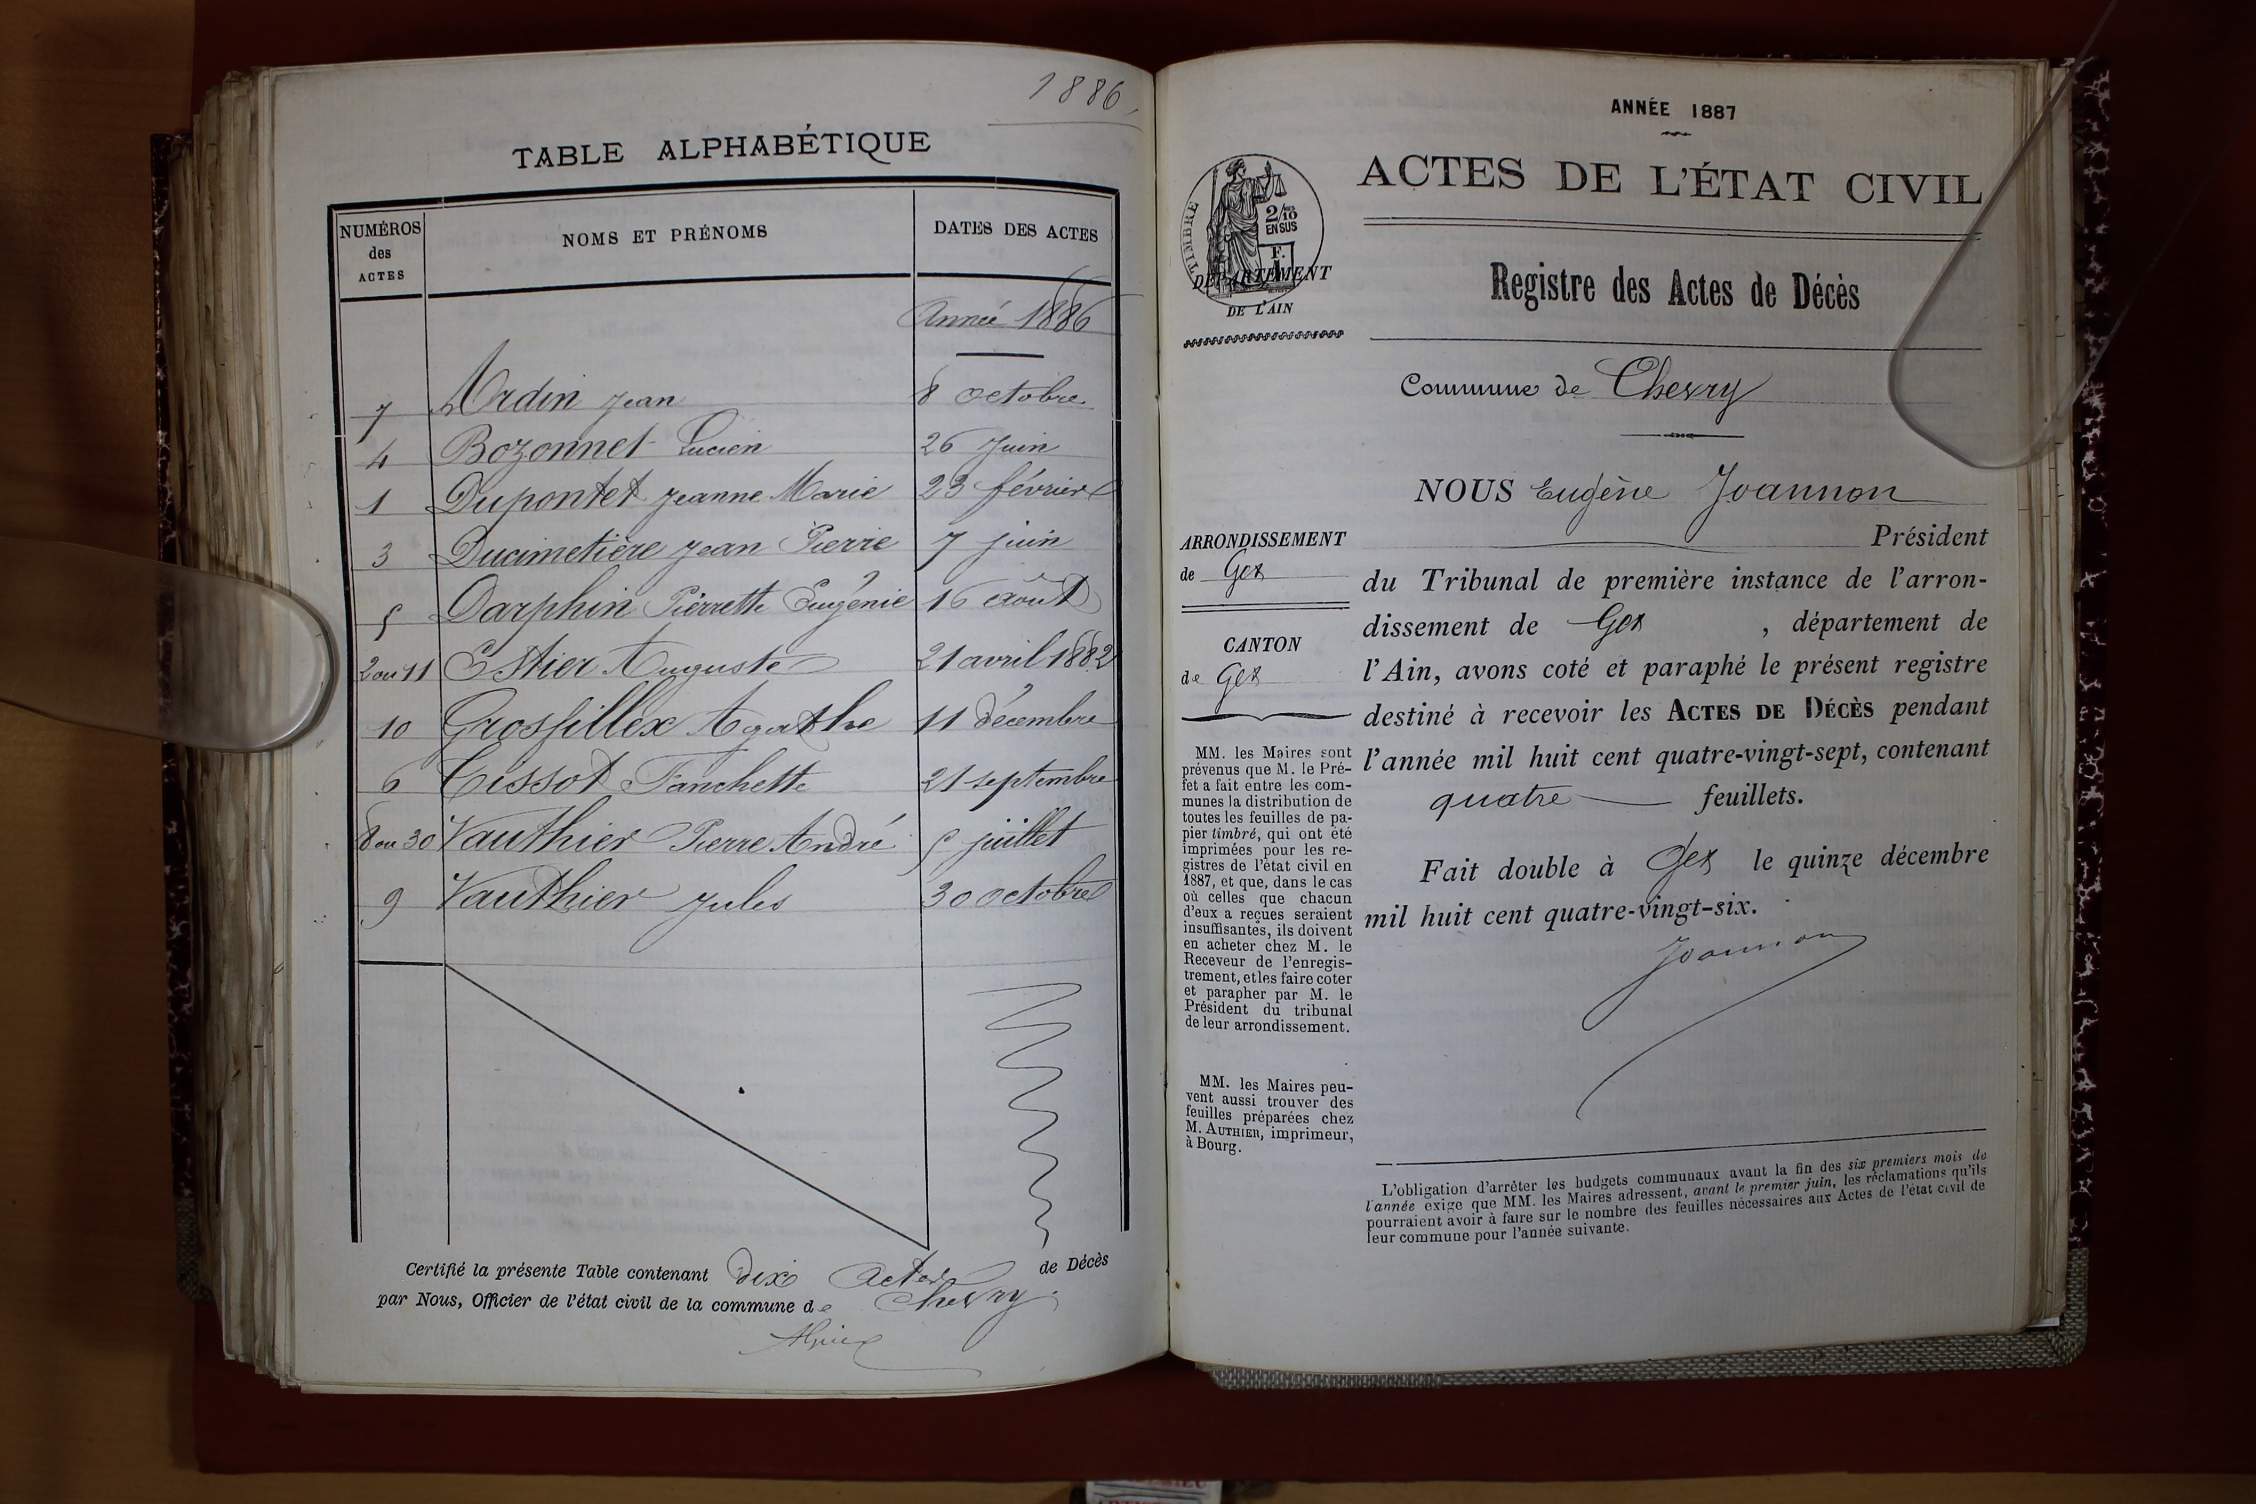 1886
TABLE ALPHABÉTIQUE
NUMÉROS des ACTES
NOMS ET PRÉNOMS
DATES DES ACTES
Année 1886
7 Ardin Jean 8 octobre
4 Bozonnet Lucien 26 Juin
1 Dupontet Jeanne Marie 23 février
3 Ducimetière Jean Pierre 7 juin
5 Darphin Pierrette Eugénie 16 août
2 ou 11 Estier Auguste 21 avril 1882
10 Grosfillex Agathe 11 décembre
6 Tissot Fanchette 21 septembre
8 ou 30 Vauthier Pierre André 5 juillet
9 Vauthier Jules 30 octobre
Certifié la présente Table contenant dix Actes de Décès
par Nous, Officier de l'état civil de la commune de Chevry
ANNÉE 1887
ACTES DE L'ÉTAT CIVIL
TIMBRE
2/10
EN SUS
F.
1
DÉPARTEMENT
DE L'AIN
Registre des Actes de Décès
Commune de Chevry
ARRONDISSEMENT
de Gex
CANTON
de Gex
MM. les Maires sont
prévenus que M. le Pré-
fet a fait entre les com-
munes la distribution de
toutes les feuilles de pa-
pier timbré, qui ont été
imprimées pour les re-
gistres de l'état civil en
1887, et que, dans le cas
où celles que chacun
d'eux a reçues seraient
insuffisantes, ils doivent
en acheter chez M. le
Receveur de l'enregis-
trement, et les faire coter
et parapher par M. le
Président du tribunal
de leur arrondissement.
MM. les Maires peu-
vent aussi trouver des
feuilles préparées chez
M. AUTHIER, imprimeur,
à Bourg.
NOUS Eugène Joannon
Président
du Tribunal de première instance de l'arron-
dissement de Gex , département de
l'Ain, avons coté et paraphé le présent registre
destiné à recevoir les ACTES DE DÉCÈS pendant
l'année mil huit cent quatre-vingt-sept, contenant
quatre feuillets.
Fait double à Gex le quinze décembre
mil huit cent quatre-vingt-six.
Joannon
L'obligation d'arrêter les budgets communaux avant la fin des six premiers mois de
l'année exige que MM. les Maires adressent, avant le premier juin, les réclamations qu'ils
pourraient avoir à faire sur le nombre des feuilles nécessaires aux Actes de l'état civil de
leur commune pour l'année suivante.